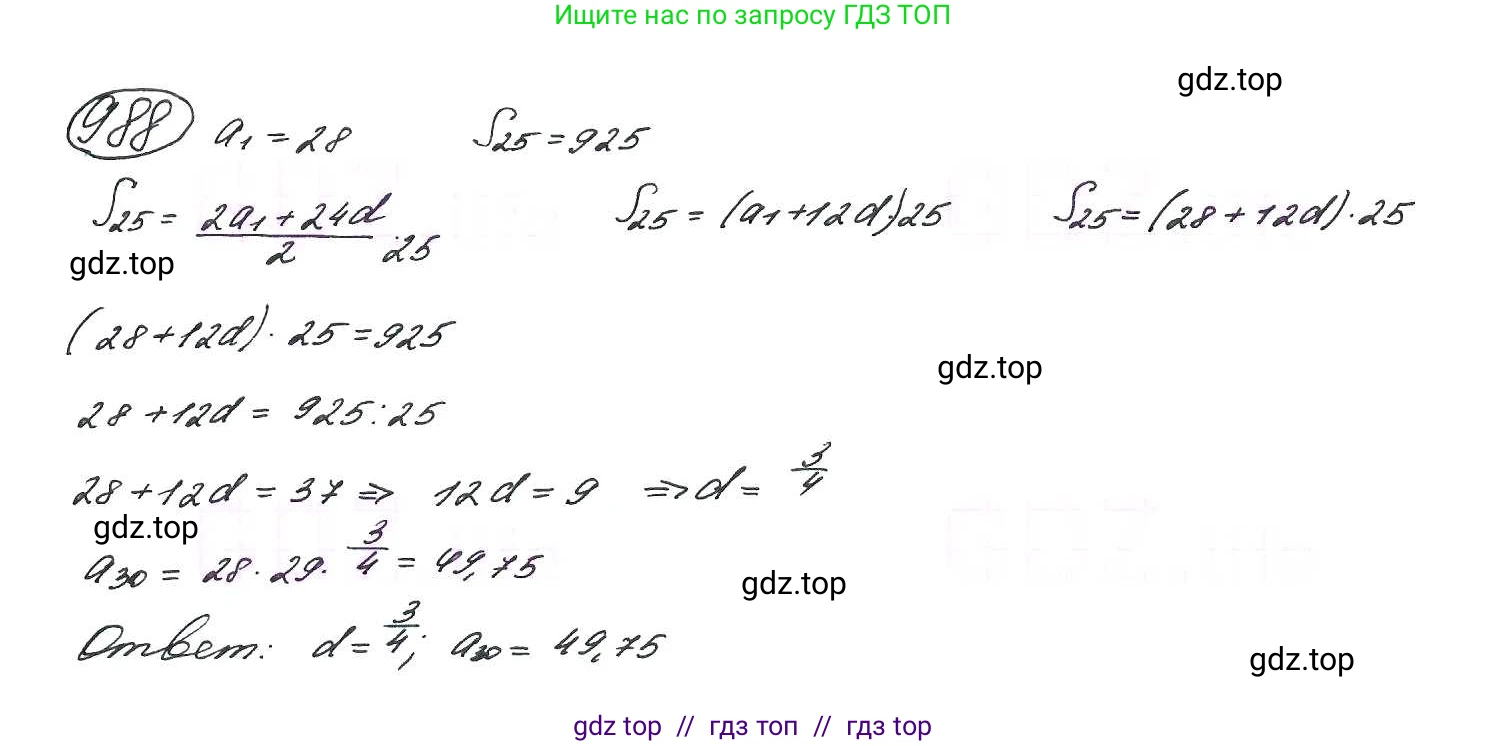 Ищите нас по запросу ГДЗ ТОП
gdz.top
988 a₁ = 28 S₂₅ = 925
S₂₅ = (2a₁ + 24d)/2 · 25 S₂₅ = (a₁ + 12d)·25 S₂₅ = (28 + 12d) · 25
gdz.top
(28 + 12d) · 25 = 925
gdz.top
28 + 12d = 925 : 25
28 + 12d = 37 ⇒ 12d = 9 ⇒ d = 3/4
gdz.top
a₃₀ = 28 · 29 · 3/4 = 49,75
gdz.top
Ответ: d = 3/4; a₃₀ = 49,75
gdz.top
gdz top // гдз топ // гдз top